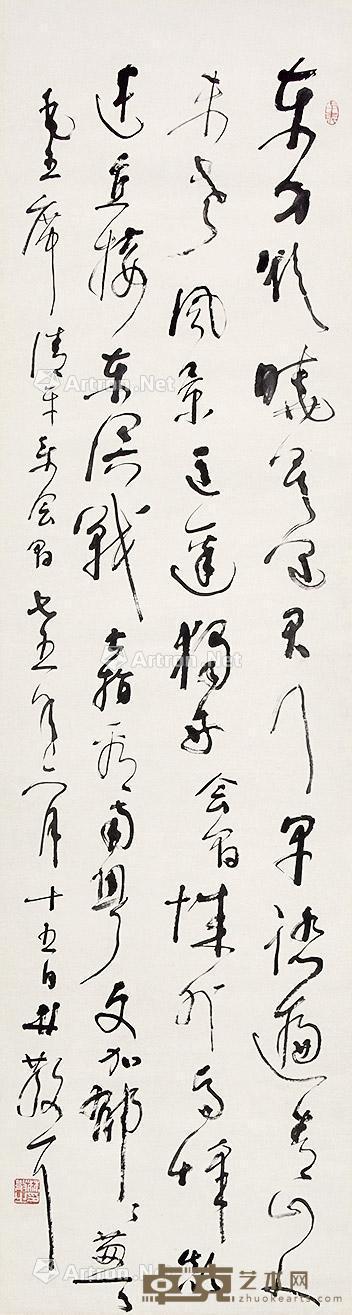 东方欲晓莫道君行早踏遍青山人
未老风景这边独好会昌城外高峰颠
连直接东溟战士指看南粤更加郁々葱々
毛主席清平乐会昌七五年六月十五日林散耳
Artron.Net
卓克艺术网
www.zhuokearts.com